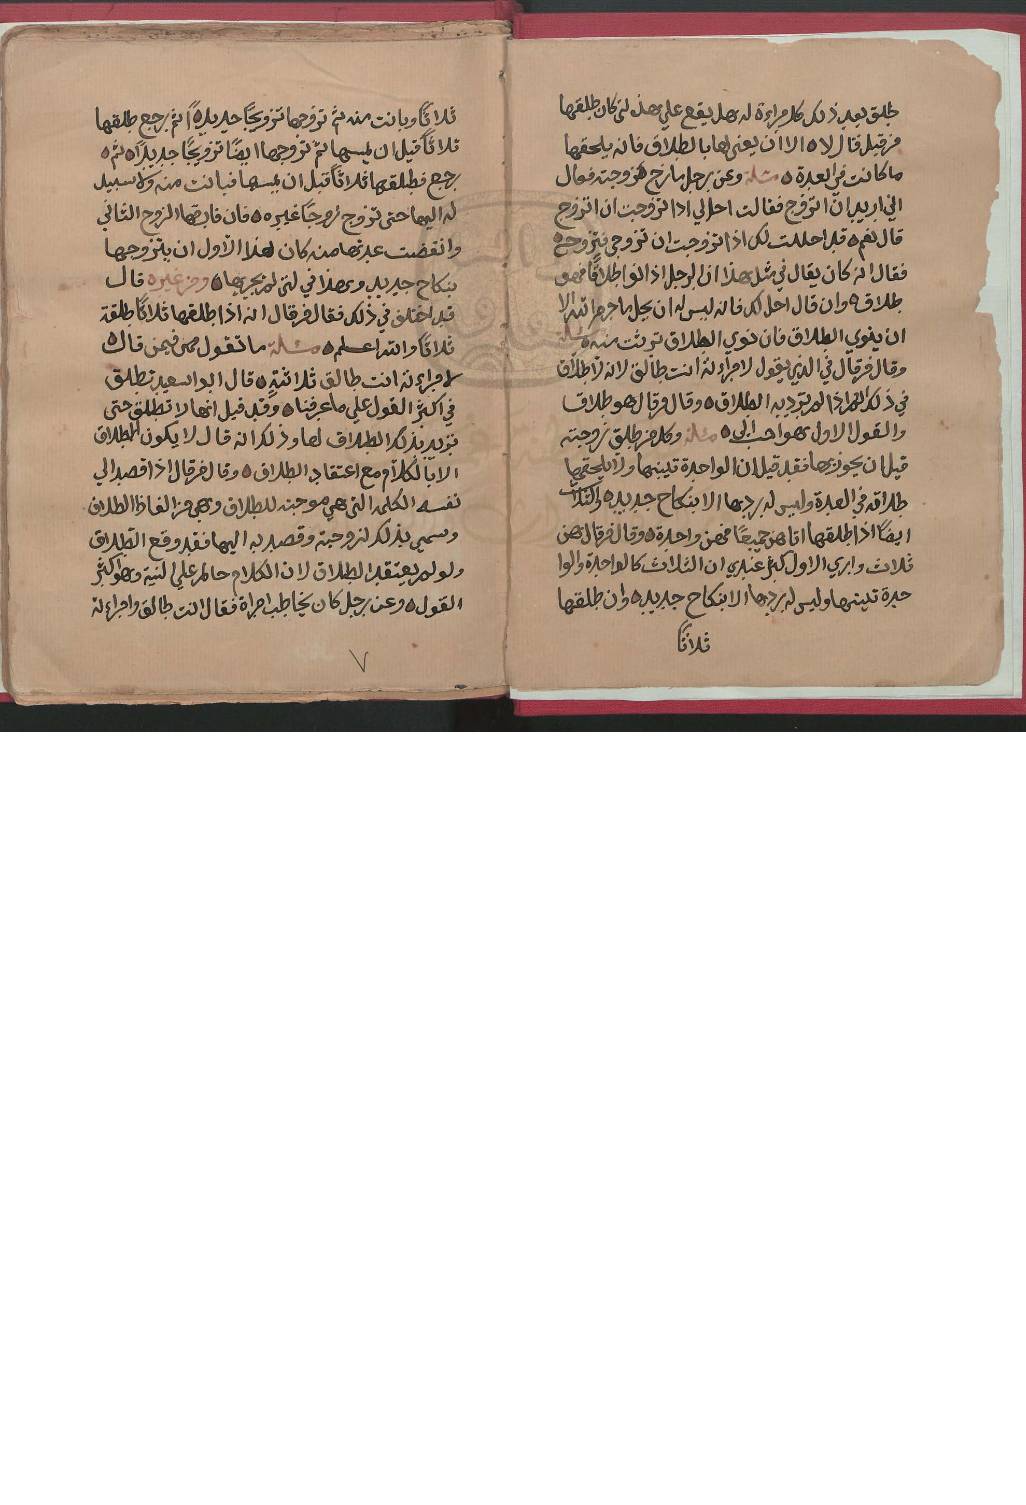 طلق بعد ذلك كل امراءة له هل يقع علي هذه التي كان طلقها
من قبل قال لا ه الا ان يعني لها بالطلاق فانه يلحقها
ما كانت في العدة ه مسئلة وعن رجل مازح زوجته فقال
اني اريد ان اتزوج فقالت احل لي اذا تزوجت ان اتزوج
قال نعم ه قد احللت لك اذا تزوجت ان تزوجي فتزوج ه
فقال انه كان يقال في مثل هذا ان الرجل اذا نوا طلاقا فهو
طلاق ه وان قال احل لك فانه ليس له ان يحل ما حرم الله الا
ان ينوي الطلاق فان نوي الطلاق ترثت منه ه مسئلة
وقال من قال في الذي يقول لامراءته انت طالق لانه لا طلاق
في ذلك لهم اذا لم يرد به الطلاق ه وقال من قال هو طلاق
والقول الاول هو احب الي ه مسئلة وكل من طلق زوجته
قبل ان يجوز بها فقد قيل ان الواحدة تبينها ولا يلحقها
طلاقه في العدة وليس له بردها الا بنكاح جديد ه والثلاث
ايضًا اذا طلقها اياهن جميعًا فهن واحدة ه وقال من قال هن
ثلاث وابري الاول اكثر عندي ان الثلاث كالواحدة والوا
حدة تبينها وليس له بردها الا بنكاح جديد ه وان طلقها
ثلاثًا
ثلاثًا وبانت منه ثم تزوجها تزويجًا جديدًا ثم رجع طلقها
ثلاثًا قبل ان يمسها ثم تزوجها ايضًا تزويجًا جديدًا ه ثم ه
رجع فطلقها ثلاثًا قبل ان يمسها فبانت منه ولا سبيل
له اليها حتى تزوج زوجًا غيره ه فان فارقها الزوج الثاني
وانقضت عدتها منه كان لهذا الاول ان يتزوجها
بنكاح جديد وهذا في التي لم يجز بها ه ومن غيره قال
قد اختلف في ذلك فقال من قال انه اذا طلقها ثلاثًا طلقة
ثلاثًا والله اعلم ه مسئلة ما تقول فيمن قال ه
لامراءته انت طالق ثلاثة ه قال ابو اسعيد تطلق
في اكثر القول علي ما عرفنا ه وقد قيل انها لا تطلق حتى
يريد بذلك الطلاق لها وذلك انه قال لا يكون الطلاق
الا بالكلام مع اعتقاد الطلاق ه وقال من قال اذا قصد الي
نفس الكلمة التي هي موجبة للطلاق وهي من الفاظ الطلاق
وسمي بذلك لزوجته وقصد به اليها فقد وقع الطلاق
ولو لم يعتقد الطلاق لان الكلام حاكم علي النية وهو اكثر
القول ه وعن رجل كان يخاطب امراة فقال انت طالق وامراءته
٧